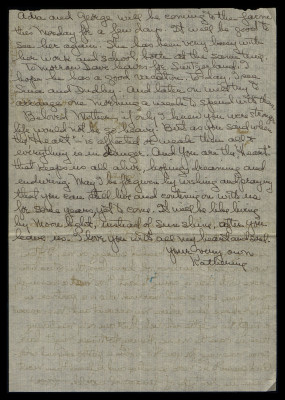 Ada and George will be coming to the farm
this Tuesday for a few days. It will be good to
see her again. She has been very busy with
her work and school both at the same time.
Tomorrow leaves for Switzerland. I
hope he has a good vacation. Today I see
and Dudley. And later on must try
arrange one morning a week to spend with
Beloved Mother, if only I knew you were strong
life would not be so heavy. But as you said when
the "Heart" is affected it means then all
everything is in danger. And you are the "heart"
that keeps us all alive, hoping dreaming and
enduring. May I be forgiven by wishing and praying
that you can still live and continue on with us
for some years yet to come. It will be like living
by moon light, instead of sun shine, after you
leave us. I love you with all my heart and soul.
Your very own
Katharine